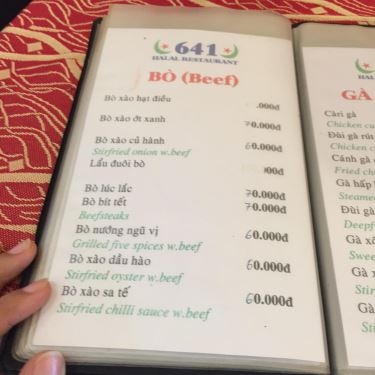 641
HALAL RESTAURANT
BÒ (Beef)
Bò xào hạt điều .000đ
Bò xào ớt xanh 70.000đ
Bò xào củ hành 60.000đ
Stirfried onion w.beef
Lẩu đuôi bò 00đ
Bò lúc lắc 70.000đ
Bò bít tết 70.000đ
Beefsteaks
Bò nướng ngũ vị 60.000đ
Grilled five spices w.beef
Bò xào dầu hào 60.000đ
Stirfried oyster w.beef
Bò xào sa tế 60.000đ
Stirfried chilli sauce w.beef
HALAL
GÀ
Càri gà
Chicken
Đùi gà
Chicken
Cánh gà
Fried
Gà hấp
Steamed
Đùi gà
Gà
Gà
Gà